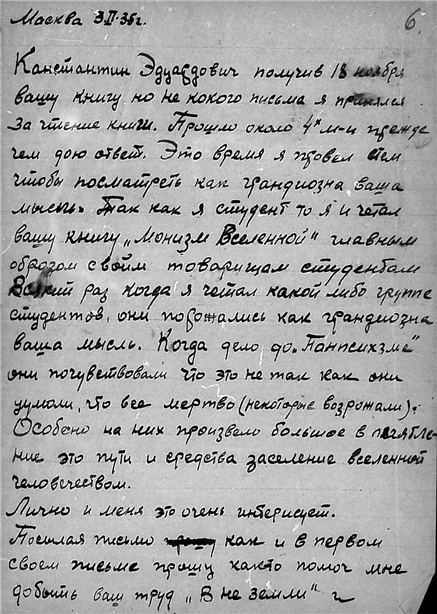 Москва 3.II.35г.
6.
Канстантин Эдуардович получив 18 ноября
вашу книгу но не кокого письма я принялся
за чтение книги. Прошло около 4х м-и прежде
чем дою ответ. Это время я провел тем
чтобы посмотреть как грандиозна ваша
мысль. Так как я студент то я и четал
вашу книгу „Монизм Вселенной" главным
образом своим товарищам студентам
Всякий раз когда я четал какой либо группе
студентов, они поражались как грандиозна
ваша мысль. Когда дело до „Панпсихзме"
они почувствовали что это не так как они
думали, что все мертво (некоторые возрожали).
Особено на них произвело большое в печятле-
ние это пути и средства заселение вселенной
человечеством.
Лично и меня это очень интерисует.
Посылая письмо прошу как и в первом
своем письме прошу както помоч мне
добыть ваш труд „В не земли" и